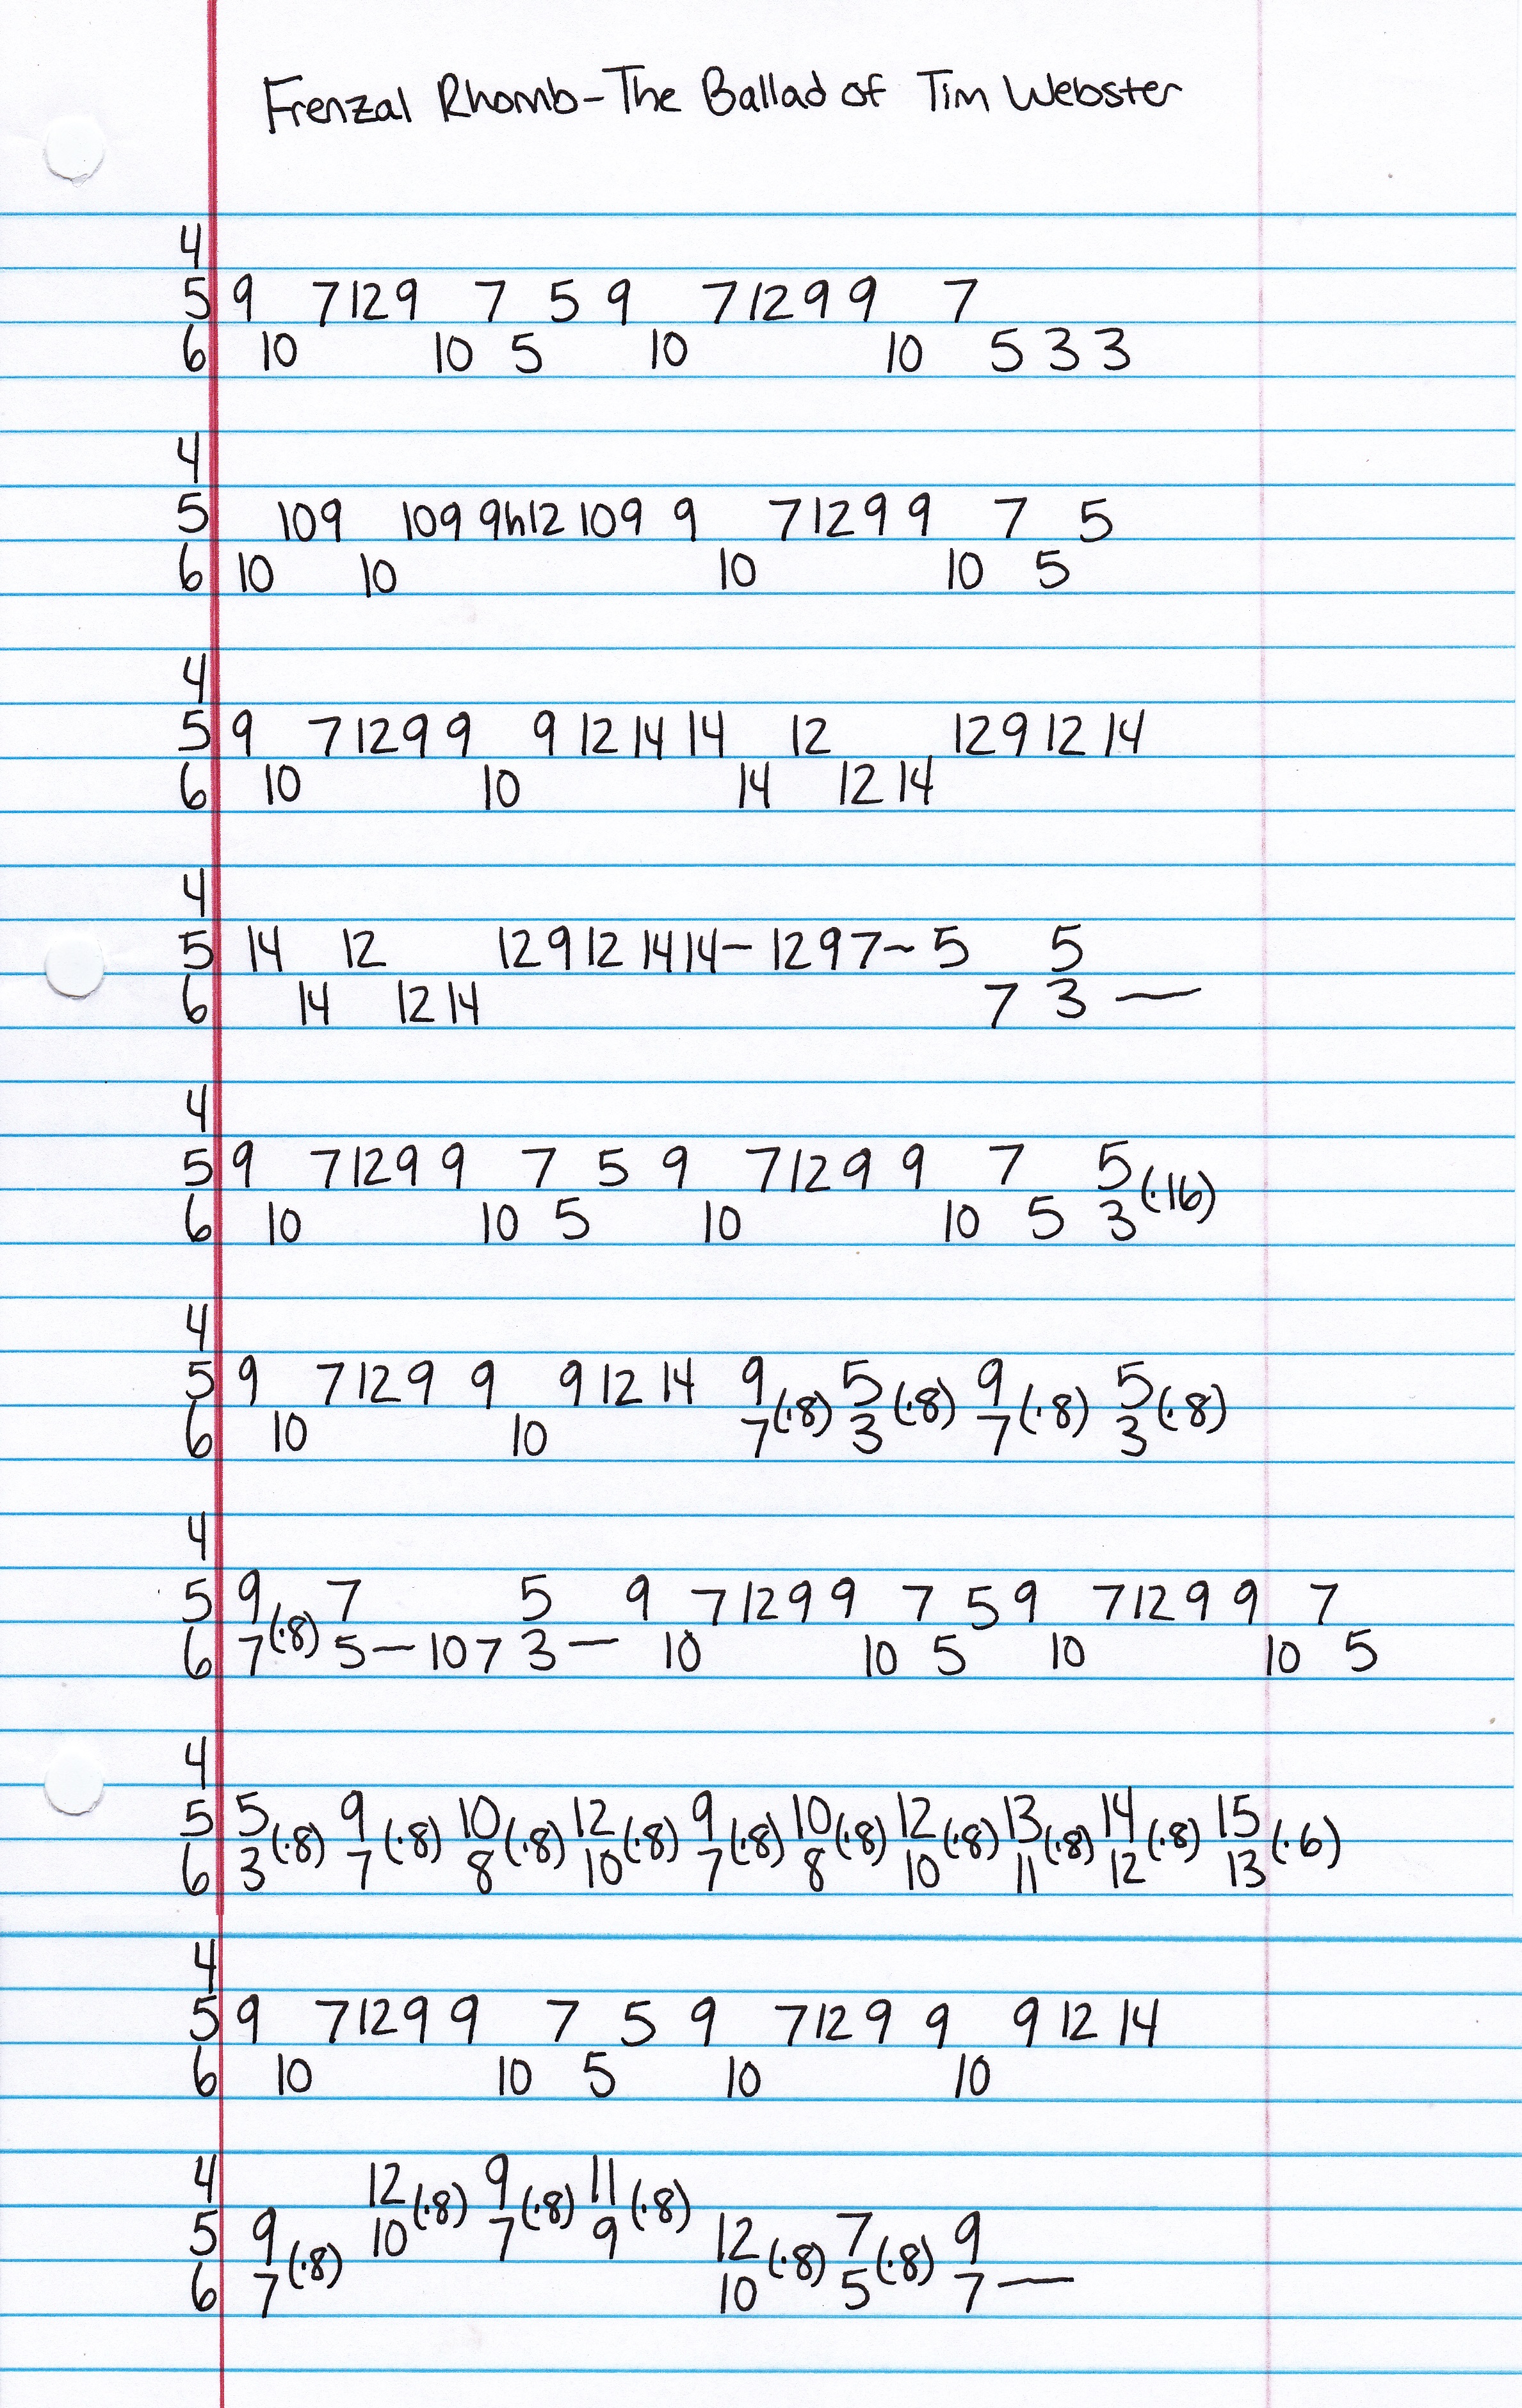 Frenzal Rhomb-The Ballad of Tim Webster
4
5 9 7 12 9 7 5 9 7 12 9 9 7
6 10 10 5 10 10 5 3 3
4
5 10 9 10 9 9h12 10 9 9 7 12 9 9 7 5
6 10 10 10 10 5
4
5 9 7 12 9 9 9 12 14 14 12 12 9 12 14
6 10 10 14 12 14
4
5 14 12 12 9 12 14 14 - 12 9 7 ~ 5 5
6 14 12 14 7 3 —
4
5 9 7 12 9 9 7 5 9 7 12 9 9 7 5 (·16)
6 10 10 5 10 10 5 3
4
5 9 7 12 9 9 9 12 14 9 (·8) 5 (·8) 9 (·8) 5 (·8)
6 10 10 7 3 7 3
4
5 9 (·8) 7 5 9 7 12 9 9 7 5 9 7 12 9 9 7
6 7 5 — 10 7 3 — 10 10 5 10 10 5
4
5 5 (·8) 9 (·8) 10 (·8) 12 (·8) 9 (·8) 10 (·8) 12 (·8) 13 (·8) 14 (·8) 15 (·6)
6 3 7 8 10 7 8 10 11 12 13
4
5 9 7 12 9 9 7 5 9 7 12 9 9 9 12 14
6 10 10 5 10 10
4 12 (·8) 9 (·8) 11 (·8)
5 9 (·8) 10 7 9 12 (·8) 7 (·8) 9
6 7 10 5 7 —